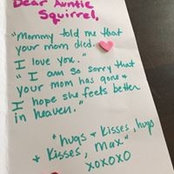 Dear Auntie
Squirrel,
"Mommy told me that
your mom died.
I love you."
"I am so sorry that
your mom has gone &
I hope she feels better
in heaven."
"hugs & kisses, hugs
& kisses, Max"
xoxoxo